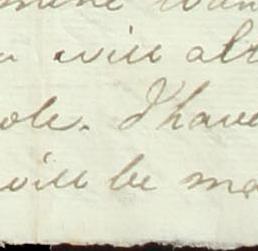 will alt
ole. I have
will be ma